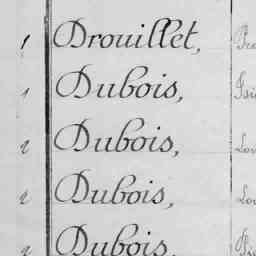 1 Drouillet,
1 Dubois,
2 Dubois,
2 Dubois,
2 Dubois,